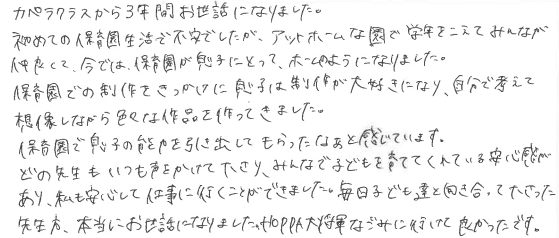 カペラクラスから3年間お世話になりました。
初めての保育園生活で不安でしたが、アットホームな園で学年をこえてみんなが
仲良くて、今では、保育園が息子にとって、ホームのようになりました。
保育園での制作をきっかけに息子は制作が大好きになり、自分で考えて
想像しながら色々な作品を作ってきました。
保育園で息子の能力を引き出してもらったなぁと感じています。
どの先生もいつも声をかけて下さり、みんなで子どもを育ててくれている安心感が
あり、私も安心して仕事に行くことができました。毎日子ども達と向き合って下さった
先生方、本当にお世話になりました。HOPPA大将軍なごみに行けて良かったです。